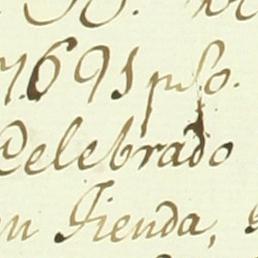 7.691 pso.
Celebrado
en Tienda,